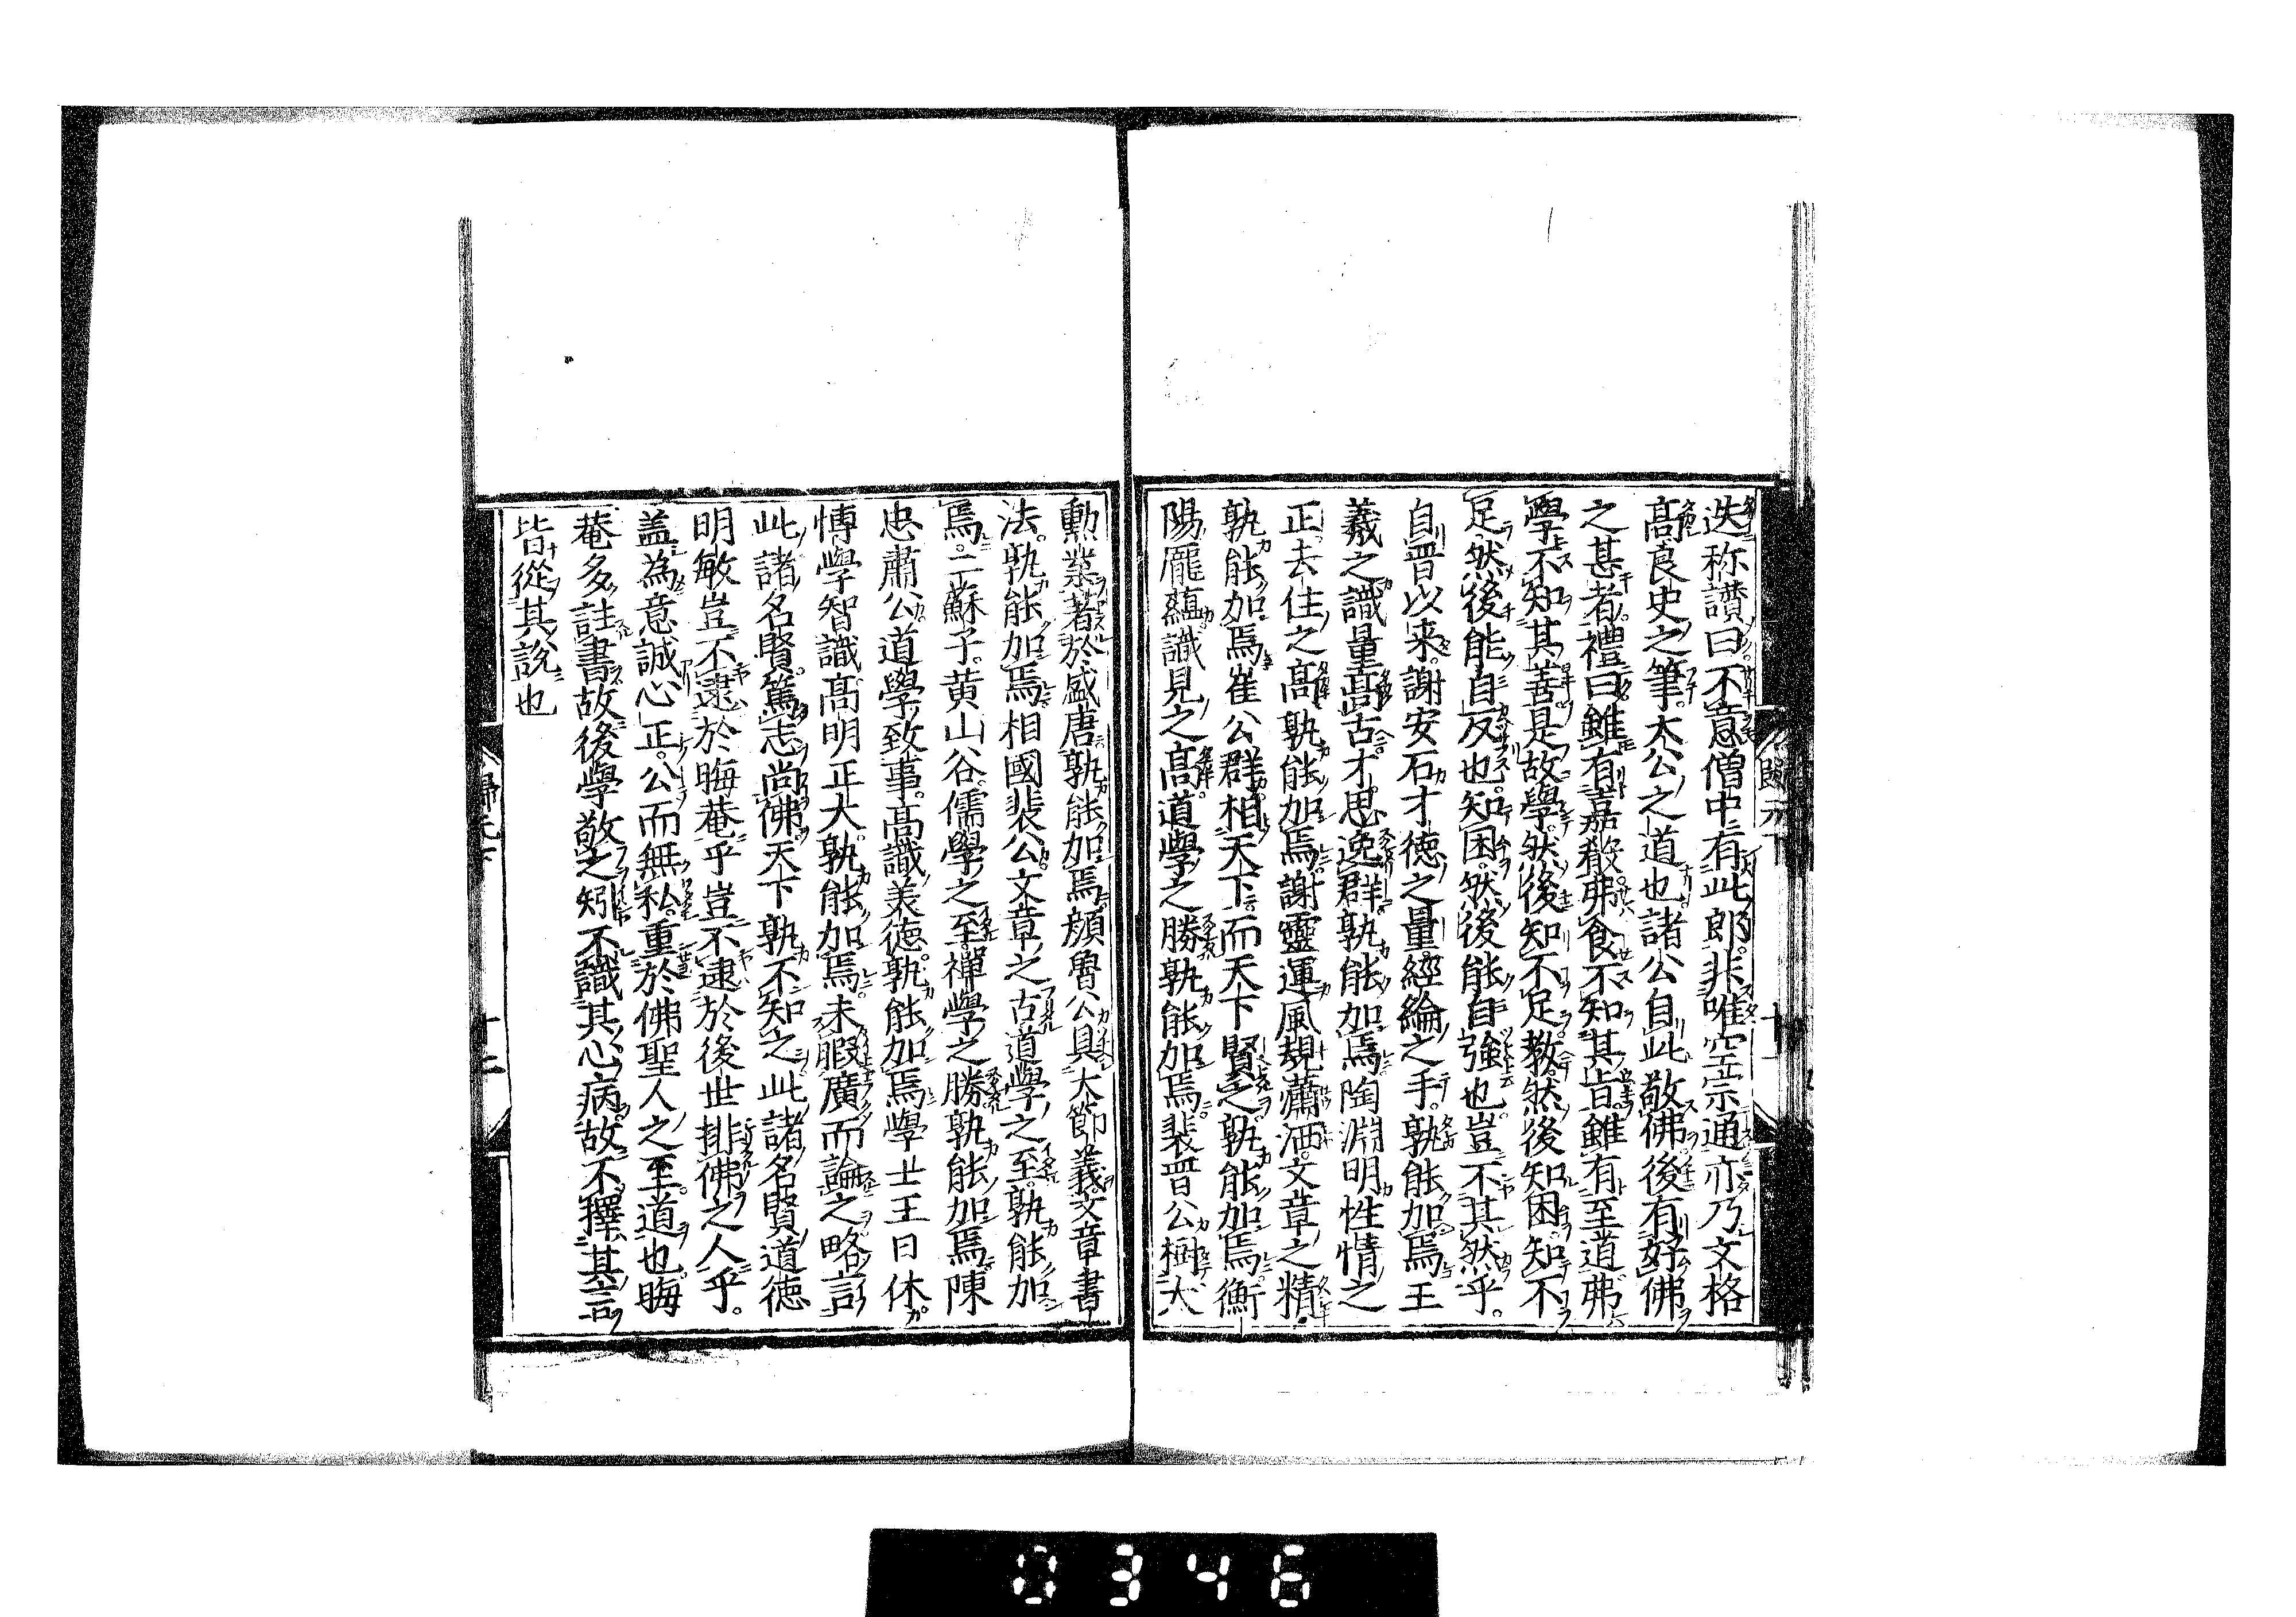 迭称讃曰不意僧中有此郎非唯空宗通亦乃文格
髙良史之筆太公之道也諸公自此敬佛後有好佛
之甚者禮曰雖有嘉殽弗食不知其旨雖有至道弗
學不知其善是故學然後知不足教然後知困知不
足然後能自反也知困然後能自強也豈不其然乎
自晋以来謝安石才徳之量經綸之手孰能加焉王
羲之識量髙古才思逸群孰能加焉陶淵明性情之
正去住之髙孰能加焉謝靈運風規瀟洒文章之精
孰能加焉崔公群相天下而天下賢之孰能加焉衡
陽龐蘊識見之髙道學之勝孰能加焉裴晋公樹大
勳業著於盛唐孰能加焉顔魯公具大節義文章書
法孰能加焉相國裴公文章之古道學之至孰能加
焉二蘇子黄山谷儒學之至禅學之勝孰能加焉陳
忠肅公道學致事髙識美徳孰能加焉學士王日休
博學智識髙明正大孰能加焉未暇廣而論之略言
此諸名賢篤志尚佛天下孰不知之此諸名賢道徳
明敏豈不逮於晦菴乎豈不逮於後世排佛之人乎
盖為意誠心正公而無私重於佛聖人之至道也晦
菴多註書故後學敬之矧不識其心病故不擇其言
皆從其説也
歸元下
十二
0346